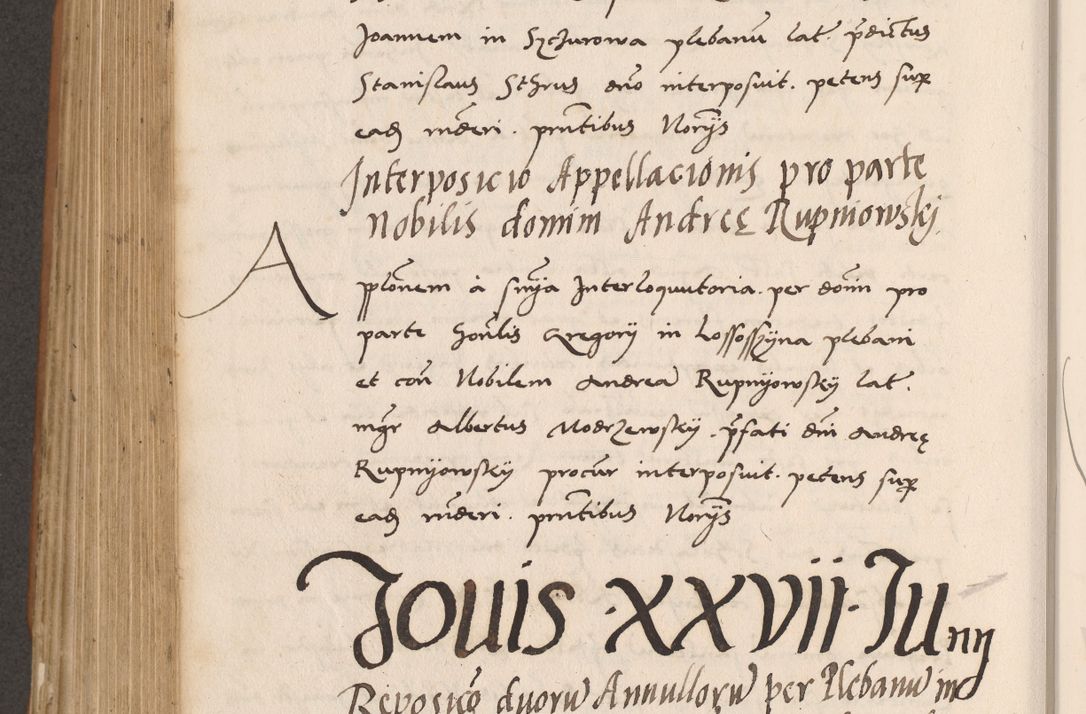 Joannem in Syczurowa plebanū lat. p̄dictus
Stanislaus Sthrus duō interposuit. petens sup
eađ mḡderi. pn̄tibus Norijs
Interposicio Appellacionis pro parte
Nobilis domini Andreę Rupniowskj
Applōnem à sn̄ia Interloqutoria. per donī pro
parte honlis Gregorij in Lossossyna plebani
et con Nobilem Andreā Rupnyowsky lat.
mgr Albertus Modrzewsky. p̄fati dni Andreę
Rupnyowsky procur interposuit. petens sup
eađ mḡderi. pn̄tibus Norijs
Jouis ·XXVII· Junij
Reposicō duorū Annullorū per Plebanū in